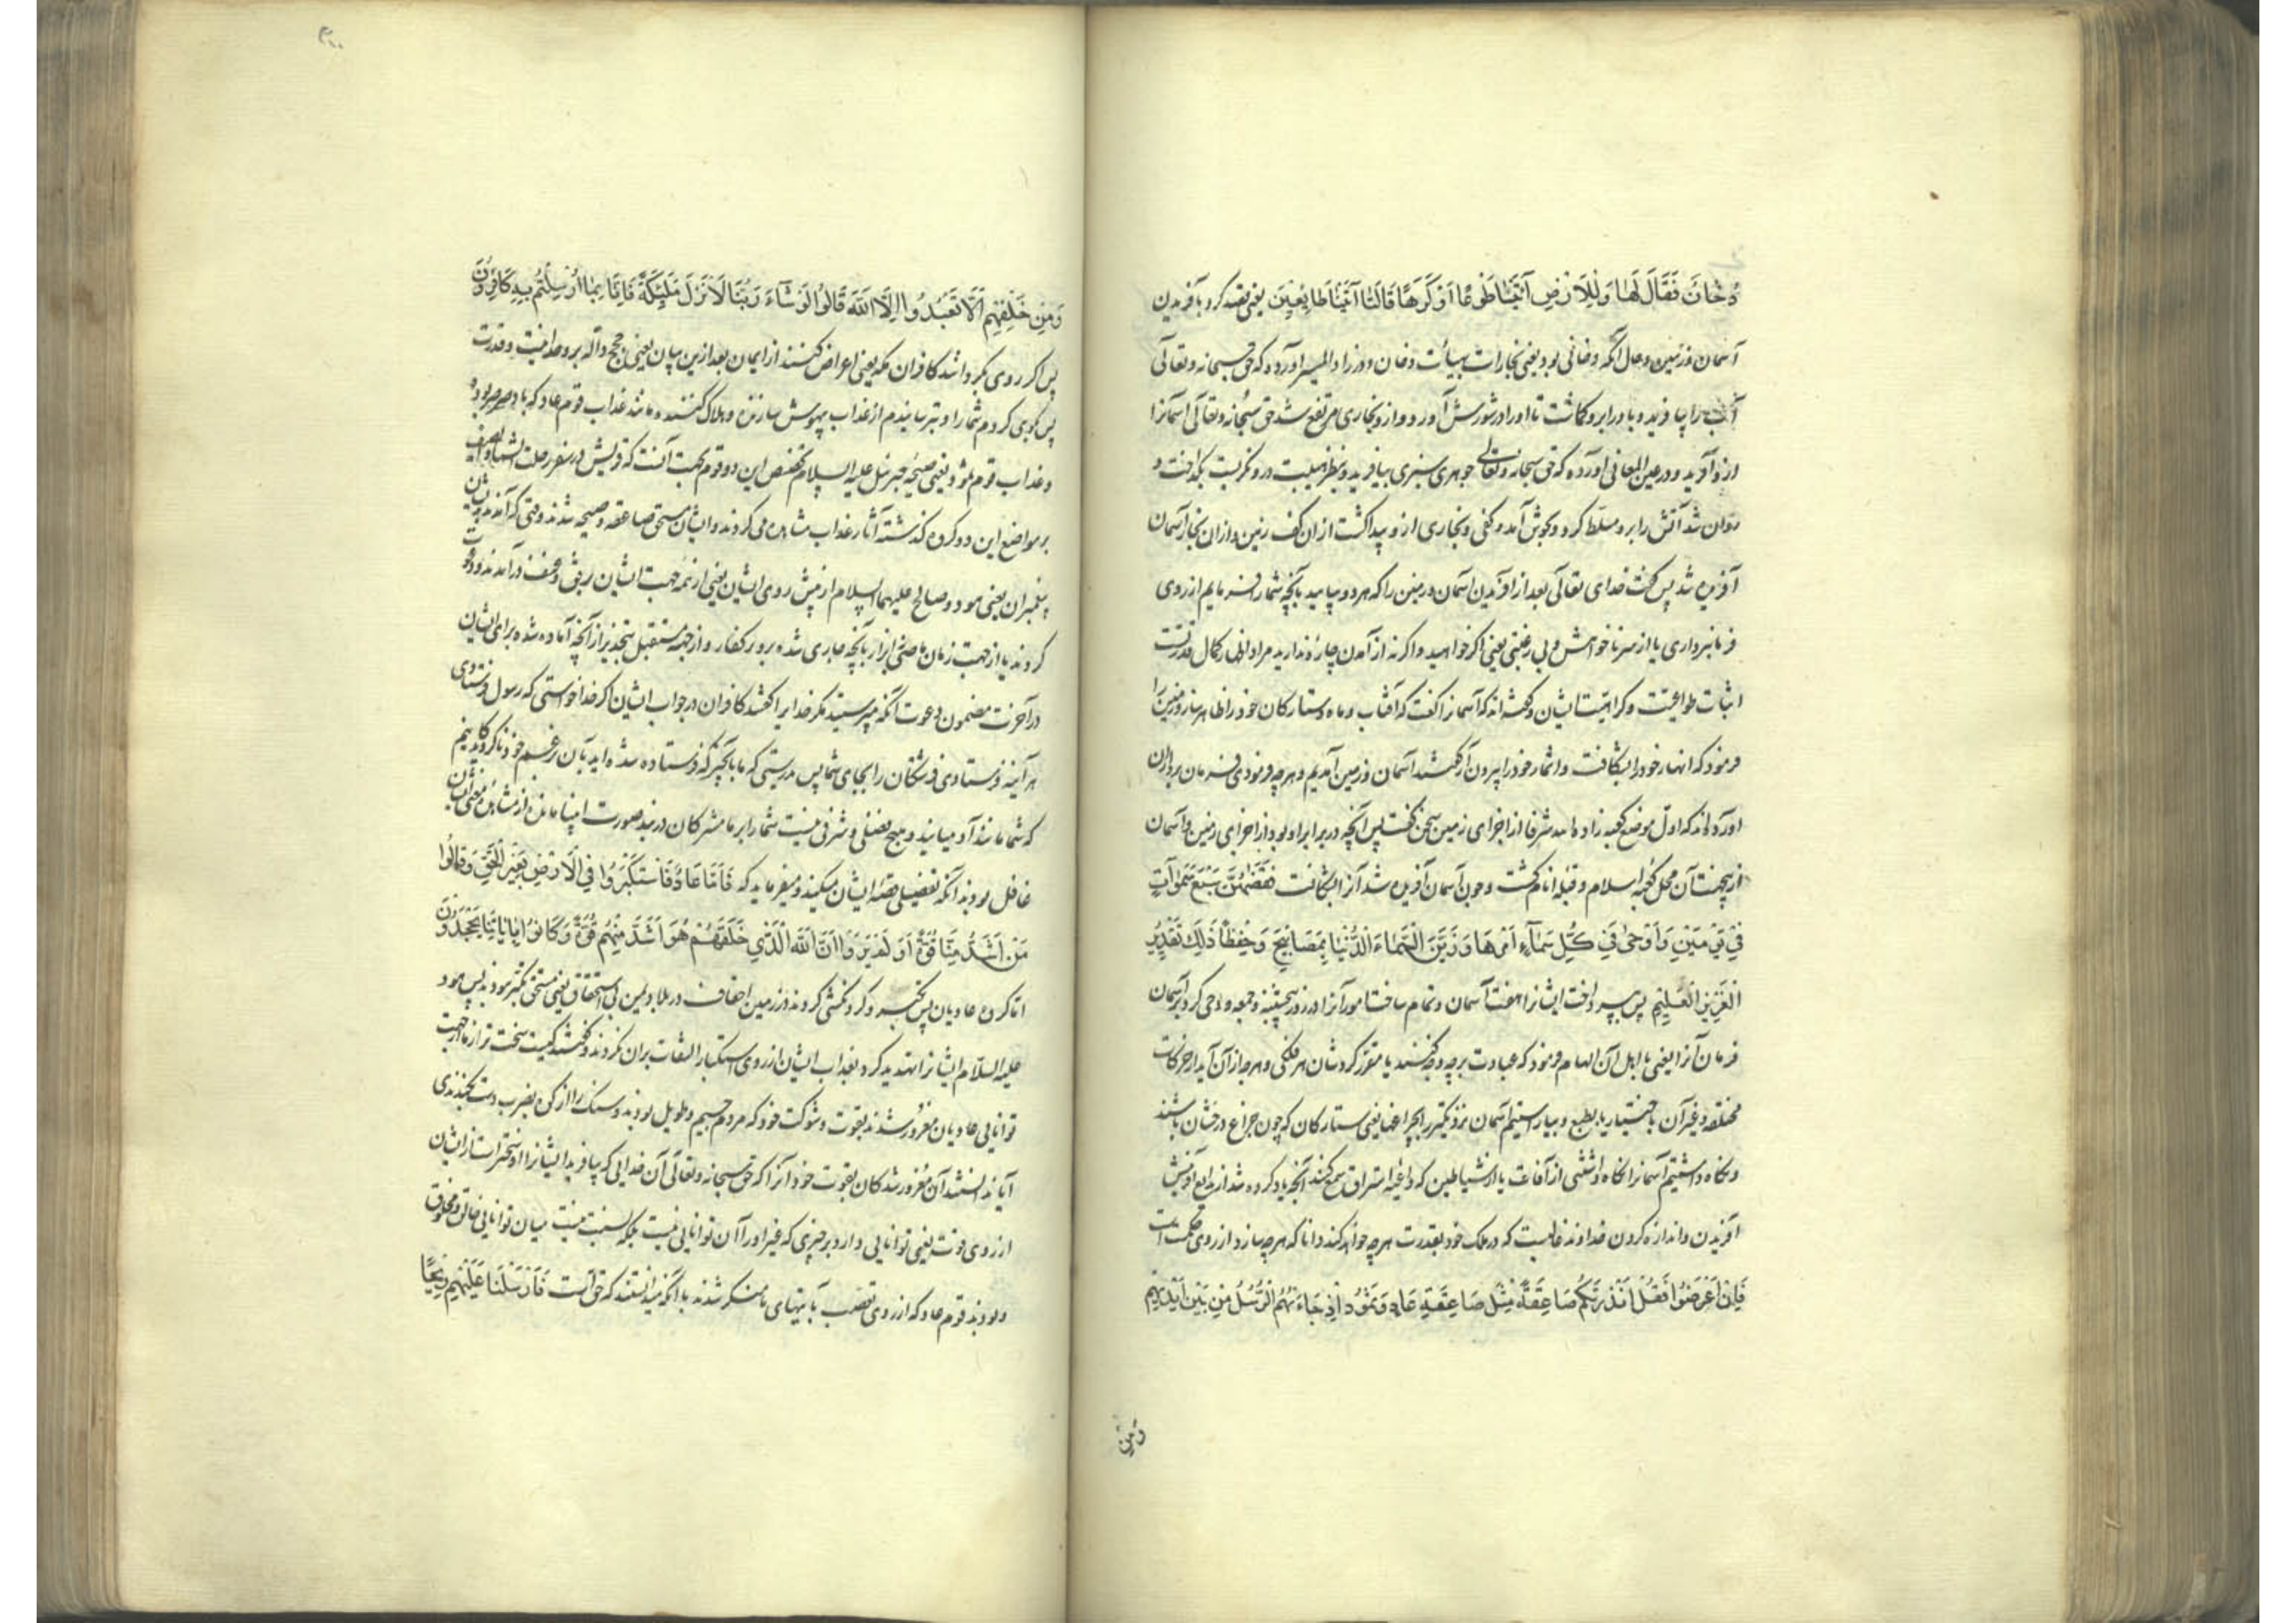 دُخَانٌ فَقَالَ لَهَا وَلِلْاَرْضِ اَئْتِيَا طَوْعًا اَوْ كَرْهًا قَالَتَا اَتَيْنَا طَايِعِينَ يعنی قصد کرد بآفریدن
آسمان و زمین و حال آنکه دخانی بود یعنی بخارات بهیأت دخان و در زاد المسیر آورده که حق سبحانه و تعالی
آب را بیافرید و باد را برو گماشت تا او را در شورش آورد و ازو بخاری مرتفع شد حق سبحانه و تعالی آسمانرا
ازو آفرید و در عین المعانی آورده که حق سبحانه و تعالی جوهری سبزی بیافرید و بنظر هیبت درو نگریست بگداخت و
روان شد آتش را برو مسلّط کرد و بجوش آمد و کفی و بخاری ازو پیدا گشت از ان کف زمین و از ان بخار آسمان
آفریده شد پس گفت خدای تعالی بعد از آفریدن آسمان و زمین را که هر دو بیایید بآنچه شما را فرمایم از روی
فرمانبرداری یا از سر ناخواهش و بی رغبتی یعنی اگر خواهید و اگر نه از آمدن چاره ندارید مراد اظهار کمال قدرتست
اثبات طواعیت و کراهیت ایشان و گفته اند که آسمانرا گفت که آفتاب و ماه و ستارگان خود را ظاهر ساز و زمین را
فرمود که انهار خود را بشکافت و اثمار خود را بیرون آر گفتند آسمان و زمین آمدیم و هر چه فرمودی فرمان برداران
آورده اند که اول موضع کعبه زاده الله شرفا از اجزای زمین سخن گفت پس آنچه در برابر او بود از اجزای زمین و آسمان
ازینجهت آن محل کعبه اسلام و قبله انام گشت و چون آسمان آفریده شد آنرا بشکافت فَقَضٰهُنَّ سَبْعَ سَمٰوَاتٍ
فِي يَوْمَيْنِ وَاَوْحٰى فِي كُلِّ سَمَآءٍ اَمْرَهَا وَزَيَّنَّا السَّمَاءَ الدُّنْيَا بِمَصَابِيحَ وَحِفْظًا ذٰلِكَ تَقْدِيْرُ
الْعَزِيْزِ الْعَلِيْمِ پس بپرداخت ایشانرا هفت آسمان و تمام ساخت امور آنرا در روز پنجشنبه و جمعه و وحی کرد بهر آسمان
فرمان آنرا یعنی باهل آن الهام فرمود که عبادت بر چه وجه کنند یا مقرّر کرد شان هر فلکی و هر چه از آن آید از حرکات
مختلفه و غیر آن باختیار یا بطبع و بیاراستیم آسمان نزدیکتر را بچراغها یعنی ستارگان که چون چراغ درخشان باشند
و نگاه داشتیم آسمانرا نگاه داشتنی از آفات یا از شیاطین که داعیه استراق سمع کنند آنچه یاد کرده شد از بدایع آفرینش
آفریدن و اندازه کردن خداوند غالبست که در ملک خود بقدرت هر چه خواهد کند دانا که هر چه سازد از روی حکمت است
فَاِنْ اَعْرَضُوْا فَقُلْ اَنْذَرْتُكُمْ صَاعِقَةً مِثْلَ صَاعِقَةِ عَادٍ وَثَمُوْدَ اِذْ جَاءَتْهُمُ الرُّسُلُ مِنْ بَيْنِ اَيْدِيْهِمْ
وَمِنْ
وَمِنْ خَلْفِهِمْ اَلَّا تَعْبُدُوا اِلَّا اللّٰهَ قَالُوا لَوْ شَآءَ رَبُّنَا لَاَنْزَلَ مَلٰٓئِكَةً فَاِنَّا بِمَا اُرْسِلْتُمْ بِهِ كَافِرُوْنَ
پس اگر روی بگردانند کافران مکه یعنی اعراض کنند از ایمان بعد ازین بیان یعنی حجج دالّه بر وحدانیت و قدرت
پس بگوی کردم شما را و بترسانیدم از عذاب بیهوش سازنده و هلاک کننده مانند عذاب قوم عاد که باد صرصر بود
و عذاب قوم ثمود یعنی صیحهٔ جبرئیل علیه السلام تخصیص این دو قوم بجهت آنست که قریش در سفر رحلت الشتاء و الصیف
بر مواضع این دو گروه گذشته آثار عذاب مشاهده می کردند و ایشان مستحق صاعقه و صیحه شدند وقتی که آمدند بدیشان
پیغمبران یعنی هود و صالح علیهما السلام از پیش روی ایشان یعنی از همه جهت ایشان برفق و عنف در آمدند و دعوت
کردند یا از جهت زمان ماضی انذار بآنچه جاری شده برور کفار و از جهه مستقبل بتحذیر از آنچه آماده شده برای ایشان
در آخرت مضمون دعوت آنکه مپرستید مگر خدایرا گفتند کافران در جواب ایشان اگر خدا خواستی که رسول فرستادی
هر آینه فرستادی فرشتگان را بجای شما پس بدرستی که ما بآنچیز که فرستاده شده اید بآن بزعم خود ناگرویدگانیم
که شما مانند آدمیانید و هیچ فضلی و شرفی نیست شما را بر ما مشرکان در بند صورت ... مانده از مشاهده معنی ایشان
غافل بودند آنکه تفصیل قصهٔ ایشان میکند و میفرماید که فَاَمَّا عَادٌ فَاسْتَكْبَرُوْا فِي الْاَرْضِ بِغَيْرِ الْحَقِّ وَقَالُوا
مَنْ اَشَدُّ مِنَّا قُوَّةً اَوَ لَمْ يَرَوْا اَنَّ اللّٰهَ الَّذِي خَلَقَهُمْ هُوَ اَشَدُّ مِنْهُمْ قُوَّةً وَكَانُوْا بِاٰيَاتِنَا يَجْحَدُوْنَ
اما گروه عادیان پس تکبر و گردنکشی کردند در زمین احقاف در بلاد یمن بی استحقاق یعنی مستحق تکبر نبودند پس هود
علیه السّلام ایشانرا تهدید کرد بعذاب ایشان از روی استکبار التفات بران نکردند و گفتند کیست سخت تر از ما از جهت
توانایی عادیان مغرور شدند بقوت و شوکت خود که مردم جسیم و طویل بودند و سنگ را از کوه بضرب دست بکندندی
آیا ندانستند آن مغرور شدگان بقوت خود آنرا که حق سبحانه و تعالی آن خدایی که بیافرید ایشانرا او سختر است از ایشان
از روی قوت یعنی توانایی دارد بر چیزی که غیر او را آن توانایی نیست بلکه نسبت نیست میان توانایی خالق و مخلوق
و بودند قوم عاد که از روی تعصب بآیتهای ما منکر شدند با آنکه میدانستند که حق است فَاَرْسَلْنَا عَلَيْهِمْ رِيْحًا